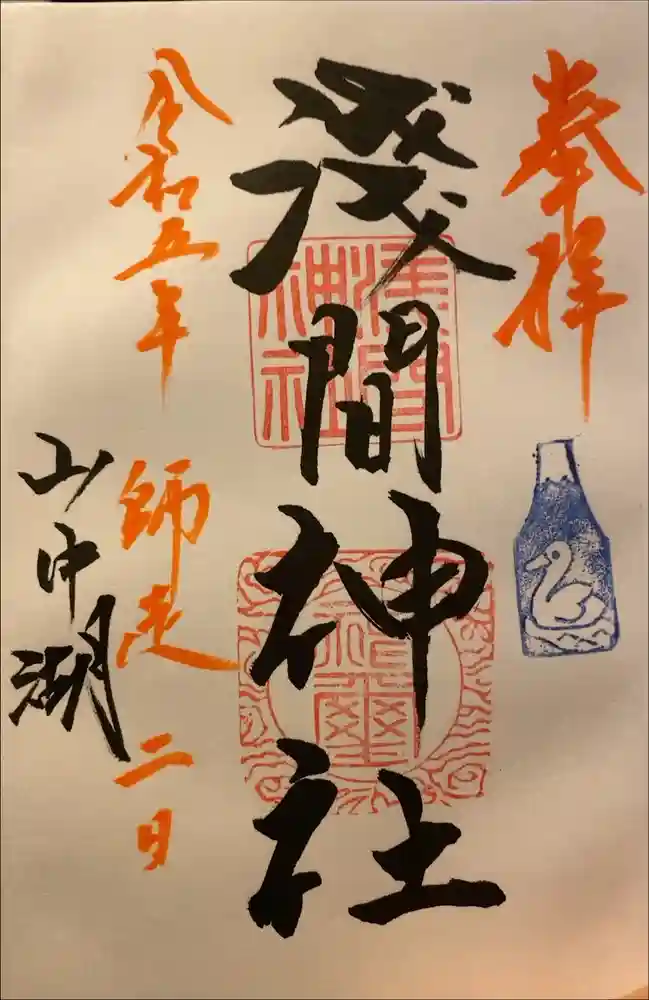 奉拝
淺間神社
淺間神社
令和五年
師走二日
山中湖